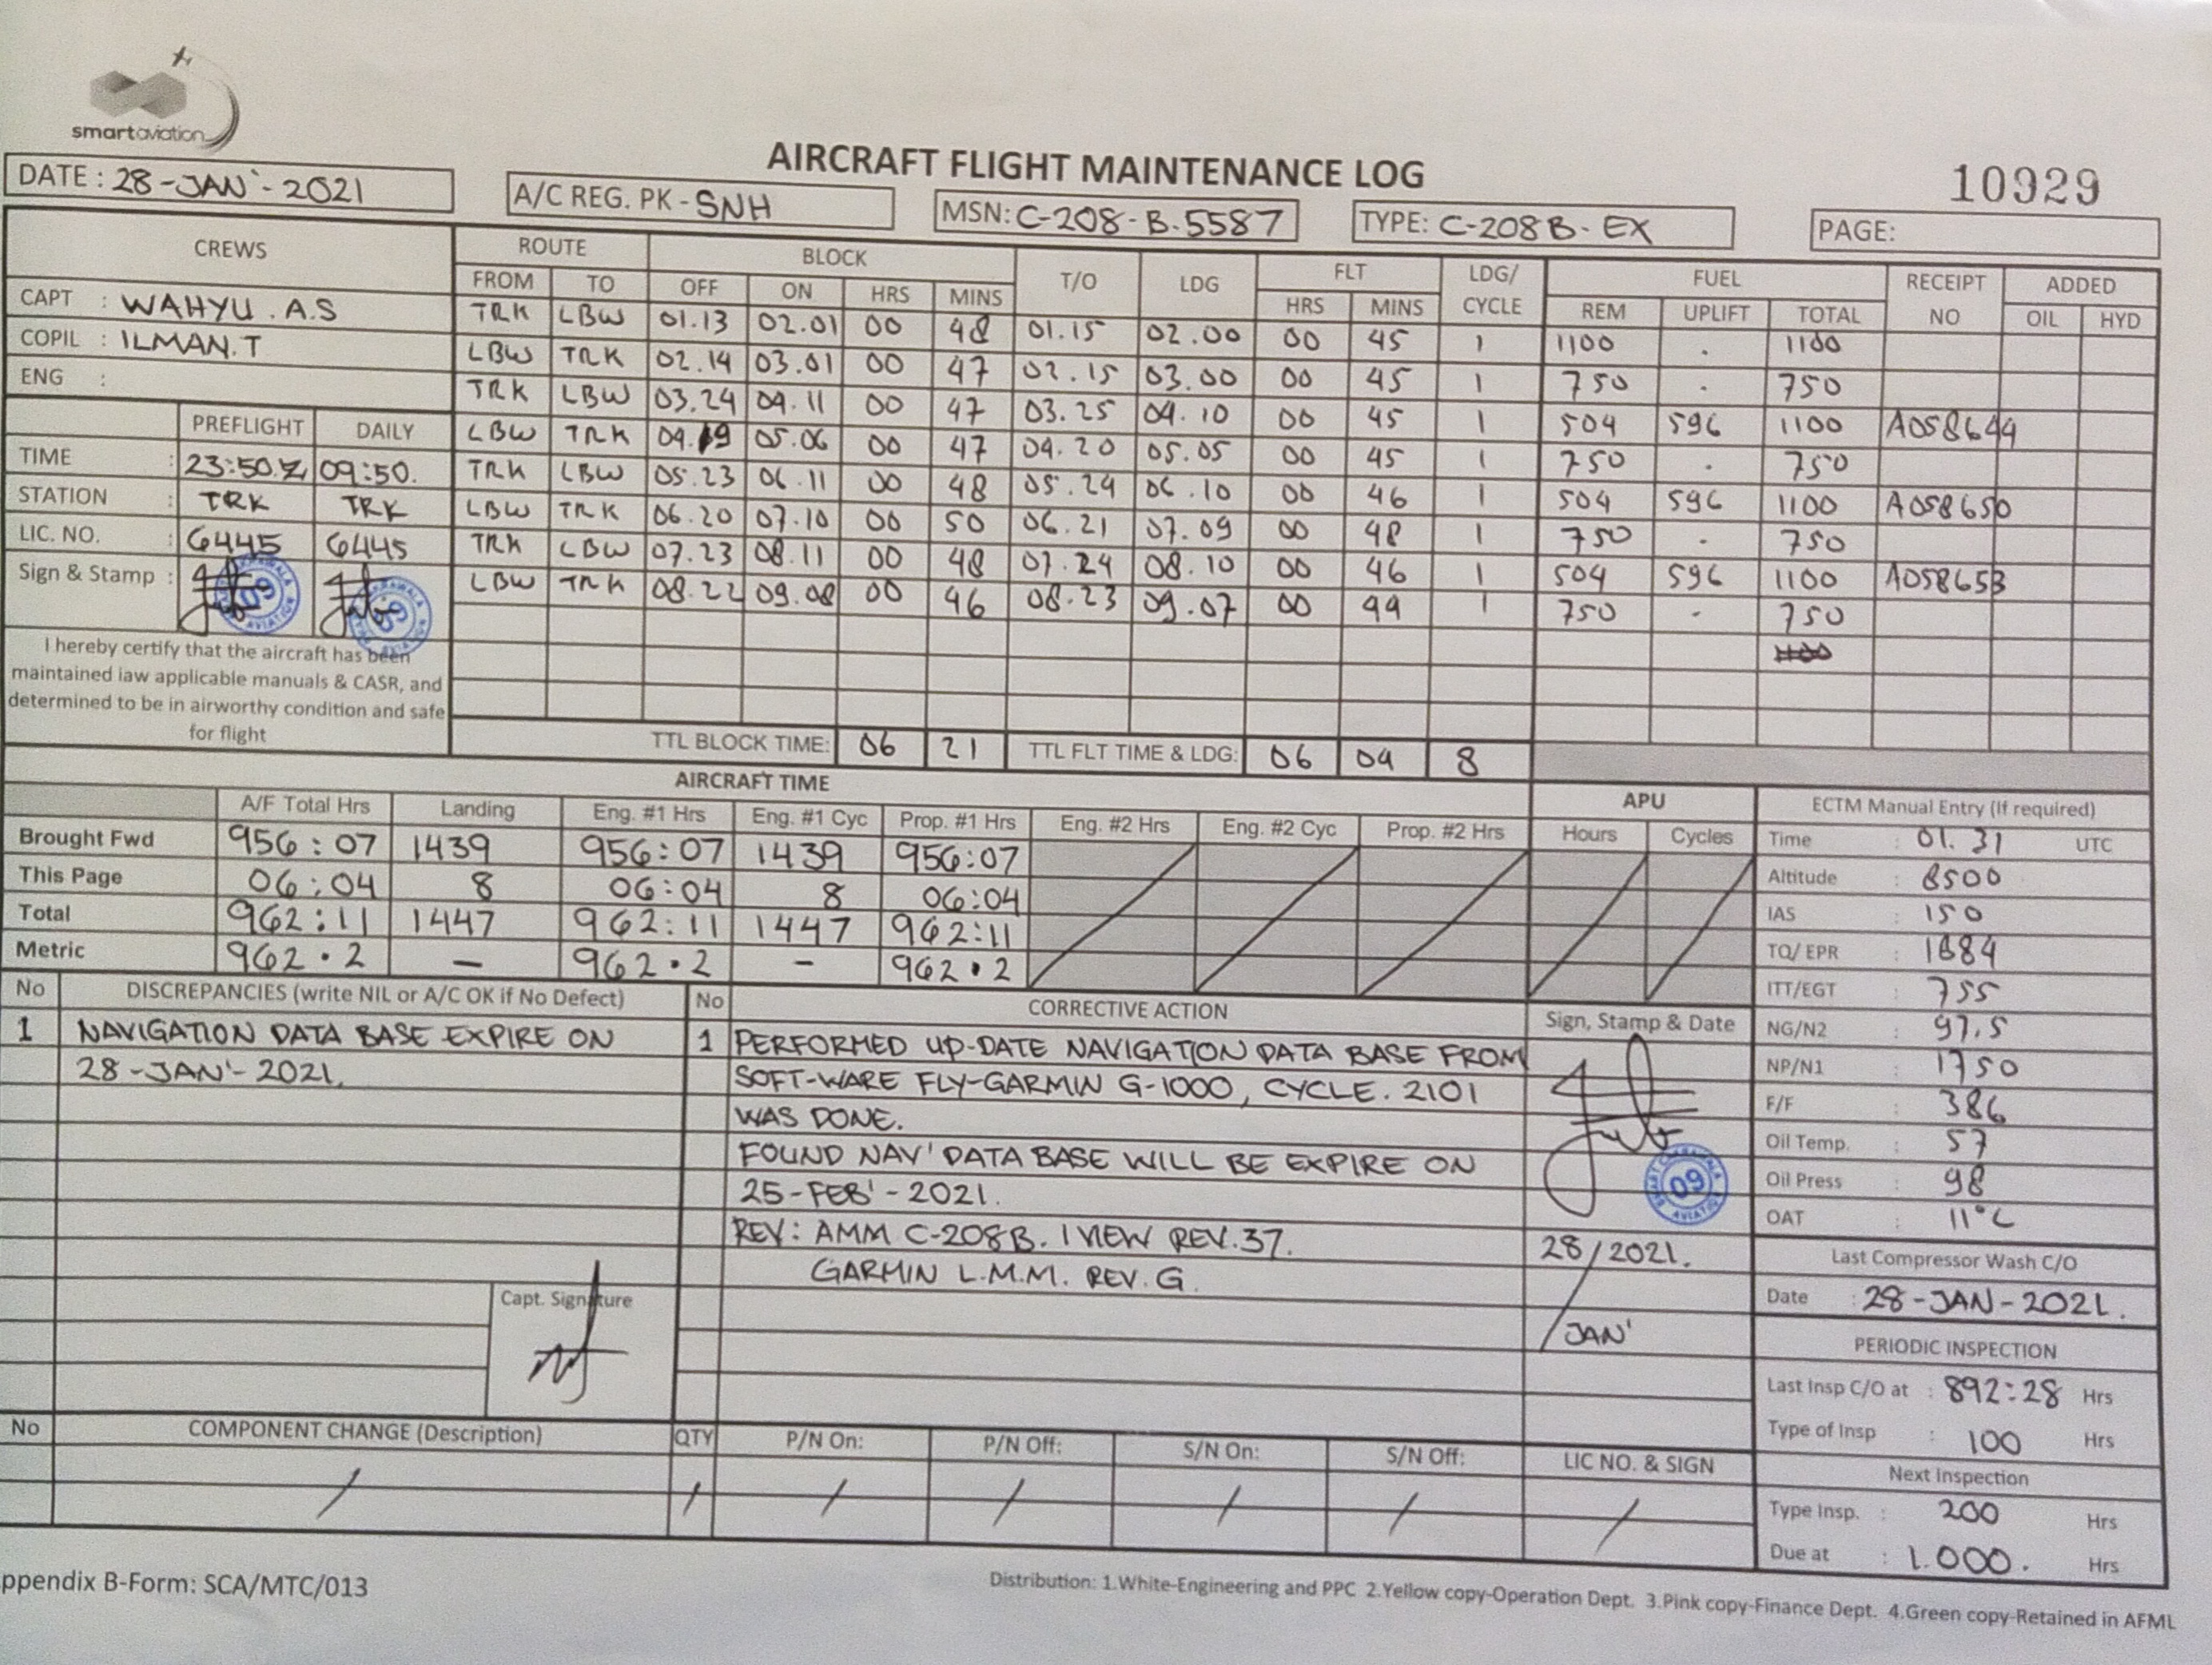 smartaviation
AIRCRAFT FLIGHT MAINTENANCE LOG
10929
DATE : 28-JAN'-2021
A/C REG. PK - SNH
MSN: C-208-B-5587
TYPE: C-208B-EX
PAGE:
CREWS
CAPT : WAHYU . A.S
COPIL : ILMAN.T
ENG :
PREFLIGHT DAILY
TIME : 23:50.Z 09:50.
STATION : TRK TRK
LIC. NO. : 6445 6445
Sign & Stamp :
09
AVIATION
09
I hereby certify that the aircraft has been
maintained iaw applicable manuals & CASR, and
determined to be in airworthy condition and safe
for flight
ROUTE BLOCK T/O LDG FLT LDG/ CYCLE FUEL RECEIPT NO ADDED
FROM TO OFF ON HRS MINS HRS MINS REM UPLIFT TOTAL OIL HYD
TRK LBW 01.13 02.01 00 48 01.15 02.00 00 45 1 1100 . 1100
LBW TRK 02.14 03.01 00 47 02.15 03.00 00 45 1 750 . 750
TRK LBW 03.24 04.11 00 47 03.25 04.10 00 45 1 504 596 1100 A058644
LBW TRK 04.19 05.06 00 47 04.20 05.05 00 45 1 750 . 750
TRK LBW 05.23 06.11 00 48 05.24 06.10 00 46 1 504 596 1100 A058650
LBW TRK 06.20 07.10 00 50 06.21 07.09 00 48 1 750 . 750
TRK LBW 07.23 08.11 00 48 07.24 08.10 00 46 1 504 596 1100 A058653
LBW TRK 08.22 09.08 00 46 08.23 09.07 00 44 1 750 - 750
TTL BLOCK TIME: 06 21 TTL FLT TIME & LDG: 06 04 8
AIRCRAFT TIME
A/F Total Hrs Landing Eng. #1 Hrs Eng. #1 Cyc Prop. #1 Hrs Eng. #2 Hrs Eng. #2 Cyc Prop. #2 Hrs
Brought Fwd 956:07 1439 956:07 1439 956:07
This Page 06:04 8 06:04 8 06:04
Total 962:11 1447 962:11 1447 962:11
Metric 962.2 - 962.2 - 962.2
APU
Hours Cycles
ECTM Manual Entry (If required)
Time : 01.31 UTC
Altitude : 8500
IAS : 150
TQ/ EPR : 1684
ITT/EGT : 755
NG/N2 : 97.5
NP/N1 : 1750
F/F : 386
Oil Temp. : 57
Oil Press : 98
OAT : 11°C
Last Compressor Wash C/O
Date : 28-JAN-2021.
PERIODIC INSPECTION
Last Insp C/O at : 892:28 Hrs
Type of Insp : 100 Hrs
Next Inspection
Type Insp. : 200 Hrs
Due at : 1.000. Hrs
No DISCREPANCIES (write NIL or A/C OK if No Defect)
1 NAVIGATION DATA BASE EXPIRE ON
28-JAN'-2021.
Capt. Signature
No CORRECTIVE ACTION
1 PERFORMED UP-DATE NAVIGATION DATA BASE FROM
SOFT-WARE FLY-GARMIN G-1000, CYCLE. 2101
WAS DONE.
FOUND NAV' DATA BASE WILL BE EXPIRE ON
25-FEB'-2021.
REV: AMM C-208B. IVIEW REV.37.
GARMIN L.M.M. REV. G.
Sign, Stamp & Date
09
AVIATION
28/2021.
/JAN'
No COMPONENT CHANGE (Description) QTY P/N On: P/N Off: S/N On: S/N Off: LIC NO. & SIGN
/ / / / / / /
ppendix B-Form: SCA/MTC/013
Distribution: 1.White-Engineering and PPC 2.Yellow copy-Operation Dept. 3.Pink copy-Finance Dept. 4.Green copy-Retained in AFML